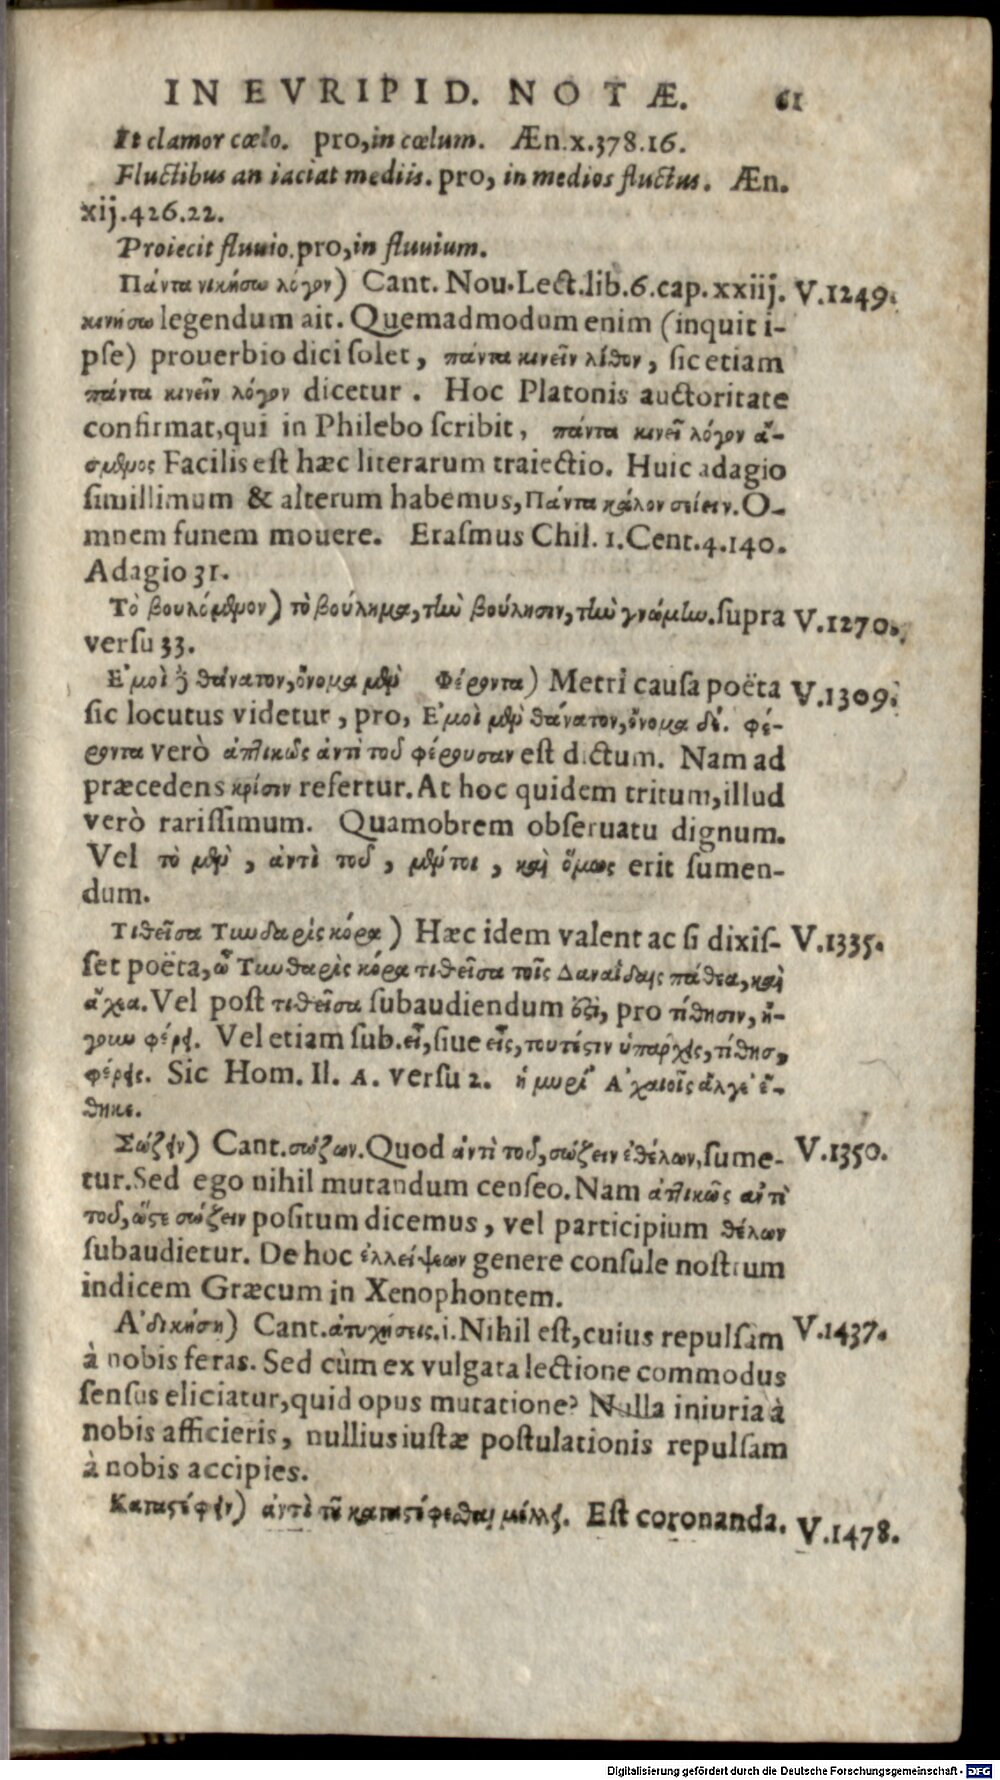 IN EVRIPID. NOTÆ. 61
It clamor cœlo. pro, in cœlum. Æn.x.378.16.
Fluctibus an iaciat mediis. pro, in medios fluctus. Æn.
xij.426.22.
Proiecit fluuio. pro, in fluuium.
Πάντα νικήσω λόγον) Cant. Nou. Lect. lib.6. cap. xxiij. V.1249.
κινήσω legendum ait. Quemadmodum enim (inquit i-
pſe) prouerbio dici ſolet, πάντα κινεῖν λίθον, ſic etiam
πάντα κινεῖν λόγον dicetur. Hoc Platonis auctoritate
confirmat, qui in Philebo ſcribit, πάντα κινεῖ λόγον ἄ-
σμενος Facilis eſt hæc literarum traiectio. Huic adagio
ſimillimum & alterum habemus, Πάντα κάλον σείειν. O-
mnem funem mouere. Eraſmus Chil. 1. Cent. 4. 140.
Adagio 31.
Τὸ βουλόμενον) τὸ βούλημα, τὴν βούλησιν, τὴν γνώμην. ſupra V.1270.
verſu 33.
Ἐμοὶ δὲ θάνατον, ὄνομα μὲν Φέροντα) Metri cauſa poëta V.1309.
ſic locutus videtur, pro, Ἐμοὶ μὲν θάνατον, ὄνομα δέ. φέ-
ροντα verò ἀττικῶς ἀντὶ τοῦ φέρουσαν eſt dictum. Nam ad
præcedens κρίσιν refertur. At hoc quidem tritum, illud
verò rariſſimum. Quamobrem obſeruatu dignum.
Vel τὸ μὲν, ἀντὶ τοῦ, μέντοι, καὶ ὅμως erit ſumen-
dum.
Τιθεῖσα Τυνδαρὶς κόρα) Hæc idem valent ac ſi dixiſ- V.1335.
ſet poëta, ὦ Τυνθαρὶς κόρα τιθεῖσα τοῖς Δαναΐδαις πάθεα, καὶ
ἄχεα. Vel poſt τιθεῖσα ſubaudiendum ἐστὶ, pro τίθησιν, ἤ-
γουν φέρει. Vel etiam ſub. εἶ, ſiue εἶς, τουτέστιν ὑπάρχεις, τίθης,
φέρεις. Sic Hom. Il. Α. verſu 2. ἡ μυρί᾽ Ἀχαιοῖς ἄλγε᾽ ἔ-
θηκε.
Σώζειν) Cant. σώζων. Quod ἀντὶ τοῦ, σώζειν ἐθέλων, ſume- V.1350.
tur. Sed ego nihil mutandum cenſeo. Nam ἀττικῶς ἀντὶ
τοῦ, ὥστε σώζειν poſitum dicemus, vel participium θέλων
ſubaudietur. De hoc ἐλλείψεων genere conſule noſtrum
indicem Græcum in Xenophontem.
Ἀδικήση) Cant. ἀτυχήσεις. i. Nihil eſt, cuius repulſam V.1437.
à nobis feras. Sed cùm ex vulgata lectione commodus
ſenſus eliciatur, quid opus mutatione? Nulla iniuria à
nobis afficieris, nullius iuſtæ poſtulationis repulſam
à nobis accipies.
Καταστέφειν) ἀντὶ τοῦ καταστέφεσθαι μέλλει. Eſt coronanda. V.1478.
Digitalisierung gefördert durch die Deutsche Forschungsgemeinschaft - DFG